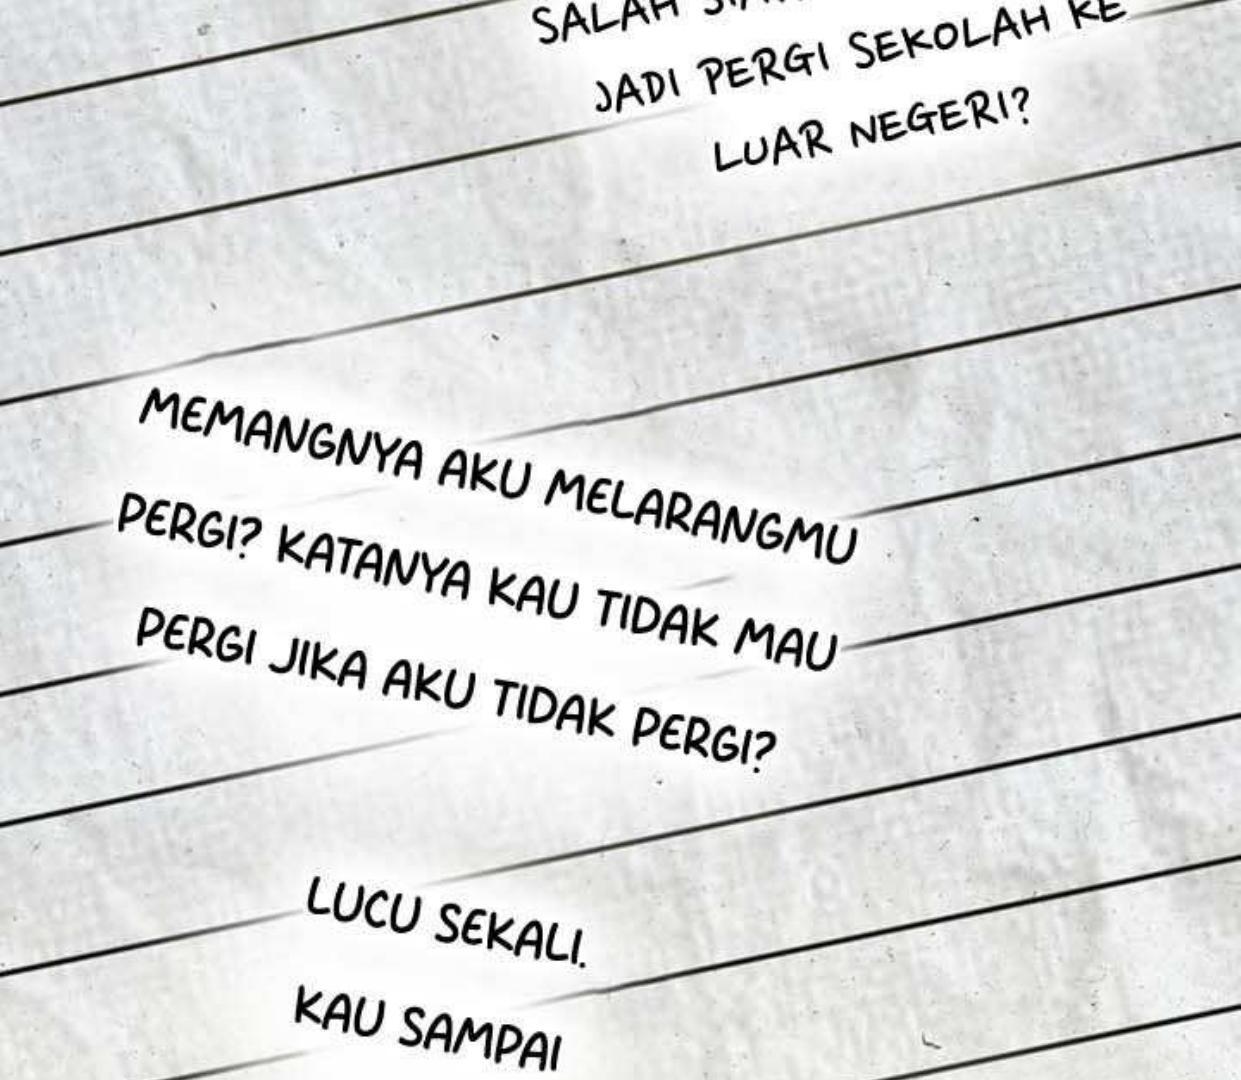 SALAH
JADI PERGI SEKOLAH KE
LUAR NEGERI?
MEMANGNYA AKU MELARANGMU
PERGI? KATANYA KAU TIDAK MAU
PERGI JIKA AKU TIDAK PERGI?
LUCU SEKALI.
KAU SAMPAI